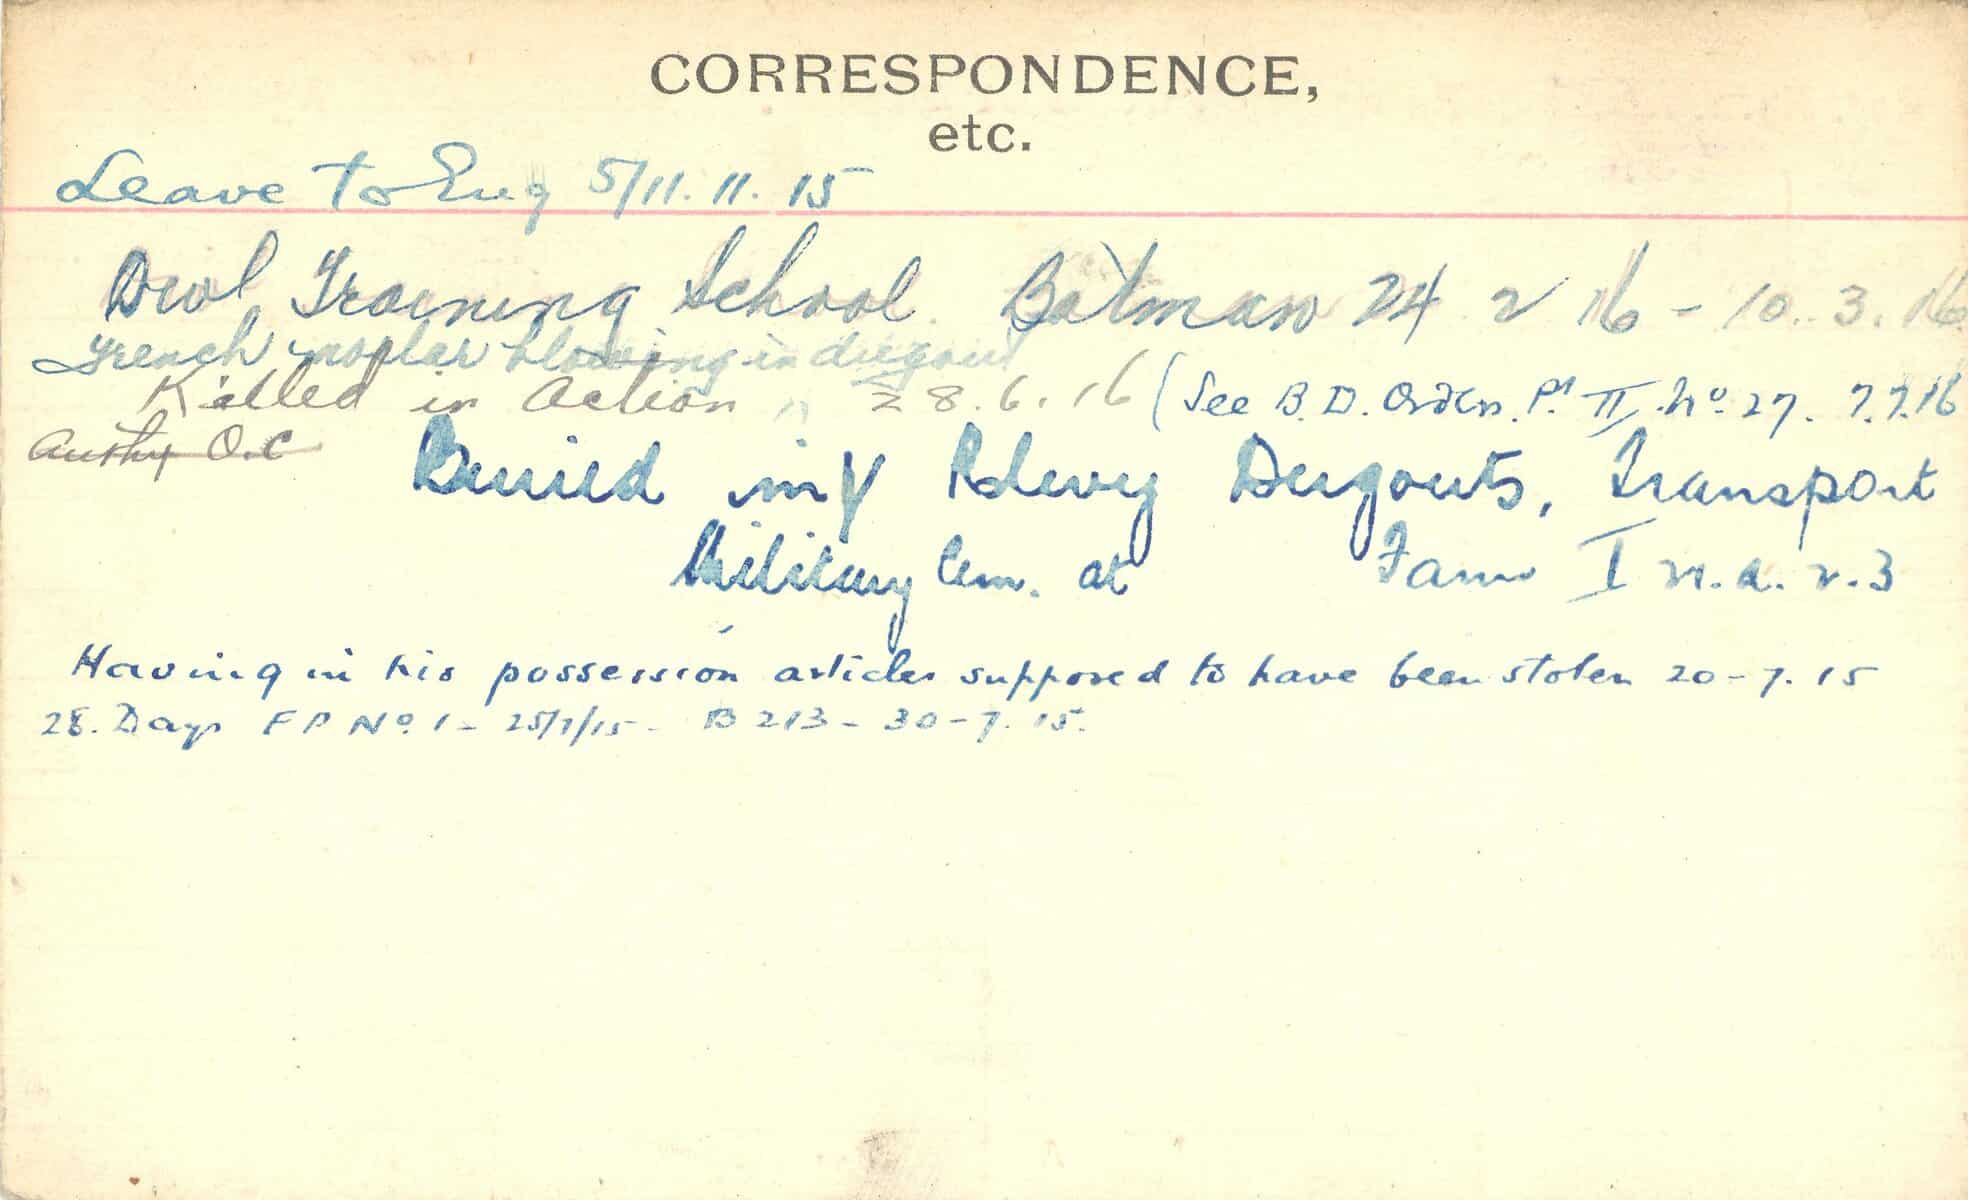 CORRESPONDENCE,
etc.
Leave to Eng 5/11.11.15
Divl Training School Batman 24 2 16 - 10.3.16
Trench mortar blowing in dugout
Killed in Action 28.6.16 (See B.D. Orders. Pt II. No. 27. 7.7.16
Authy O.C
Buried in Rly Dugouts, Transport
Military Cem. at Farm I
Having in his possession articles supposed to have been stolen 20-7.15
28. Days F P No. 1 - 25/7/15 - B 213 - 30-7.15.